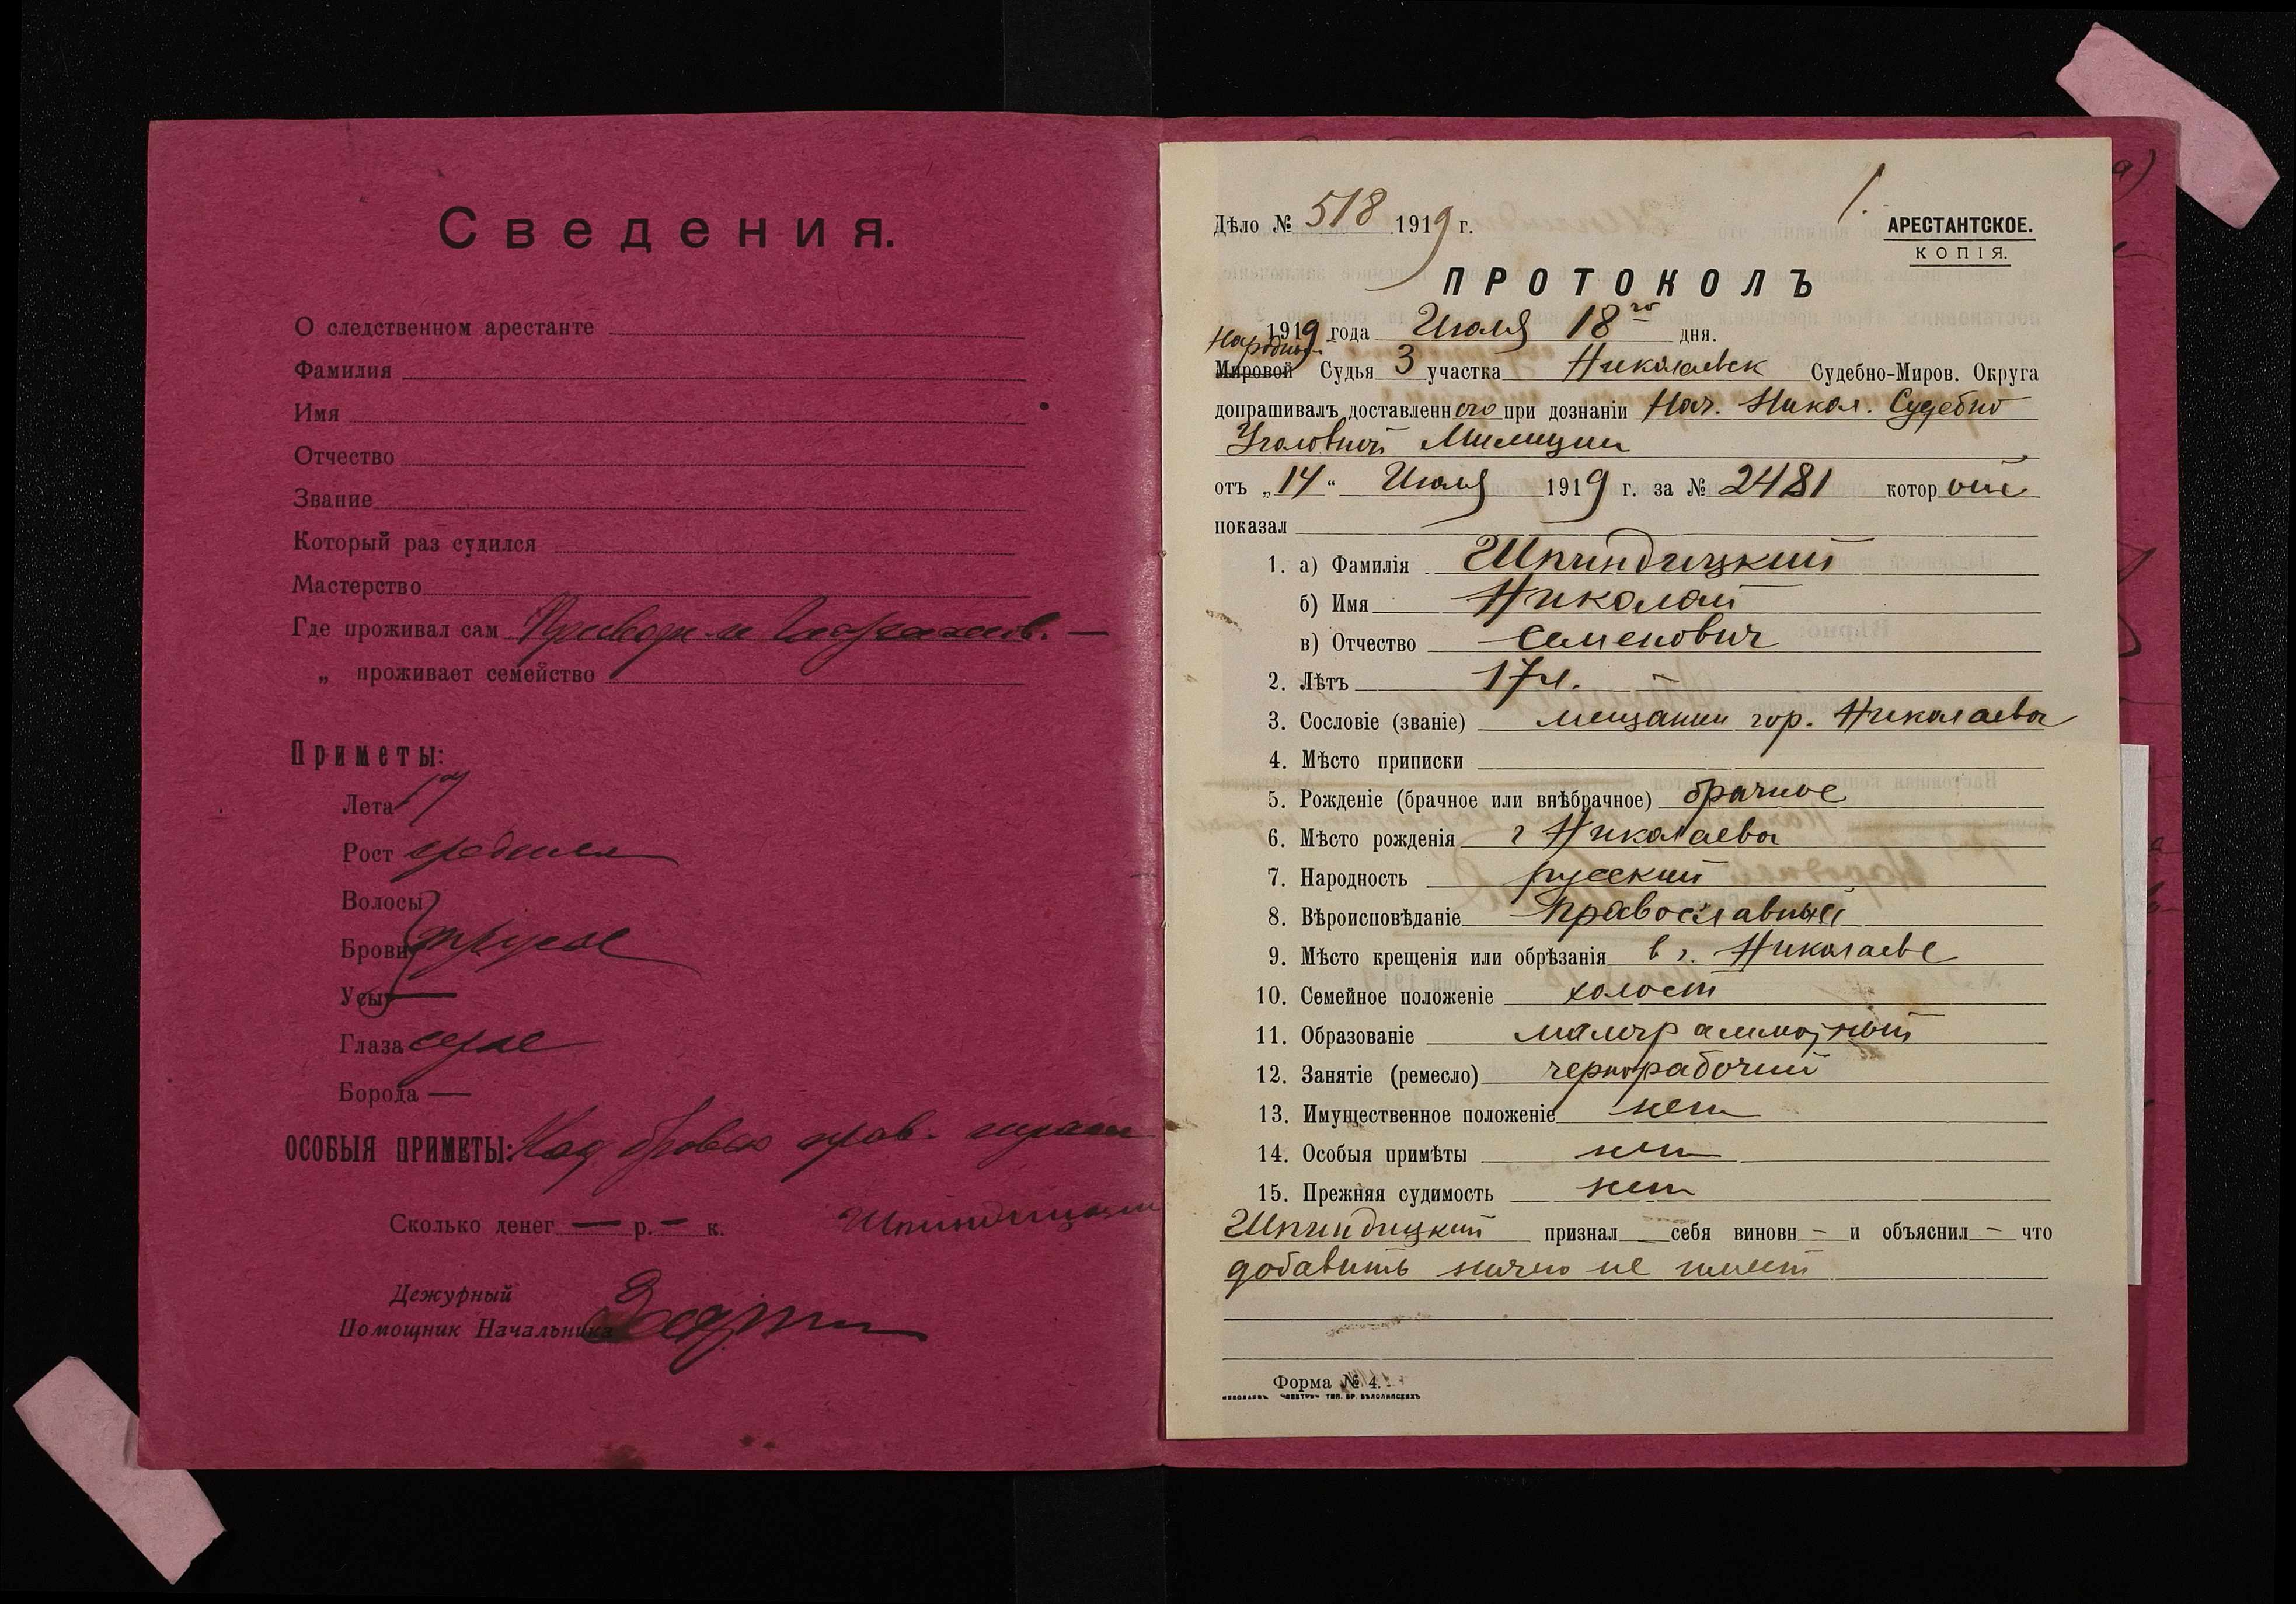 Сведения.
О следственном арестанте
Фамилия
Имя
Отчество
Звание
Который раз судился
Мастерство
Где проживал сам
„ проживает семейство
Приметы:
Лета 17
Рост средний
Волосы
Брови русые
Усы —
Глаза серые
Борода —
ОСОБЫЯ ПРИМЕТЫ: Над бровью прав. шрам
Сколько денег — р. — к.
Шпиндицкий
Дежурный
Помощник Начальника
1.
Дѣло № 518 1919 г.
АРЕСТАНТСКОЕ.
КОПІЯ.
ПРОТОКОЛЪ
1919 года Июля 18го дня.
Народный
Мировой Судья 3 участка Николаевск Судебно-Миров. Округа
допрашивалъ доставленного при дознаніи Нач. Никол. Судебно
Уголовной Милиции
отъ „14“ Июля 1919 г. за № 2481 который
показал
1. а) Фамилія Шпиндицкий
б) Имя Николай
в) Отчество Семенович
2. Лѣтъ 17 л.
3. Сословіе (званіе) мещанин гор. Николаева
4. Мѣсто приписки
5. Рожденіе (брачное или внѣбрачное) брачное
6. Мѣсто рожденія г Николаева
7. Народность русский
8. Вѣроисповѣданіе Православный
9. Мѣсто крещенія или обрѣзанія в г. Николаеве
10. Семейное положеніе холост
11. Образованіе малограмотный
12. Занятіе (ремесло) чернорабочий
13. Имущественное положеніе нет
14. Особыя примѣты нет
15. Прежняя судимость нет
Шпиндицкий признал себя виновн — и объяснил — что
добавить ничего не имеет
Форма № 4.